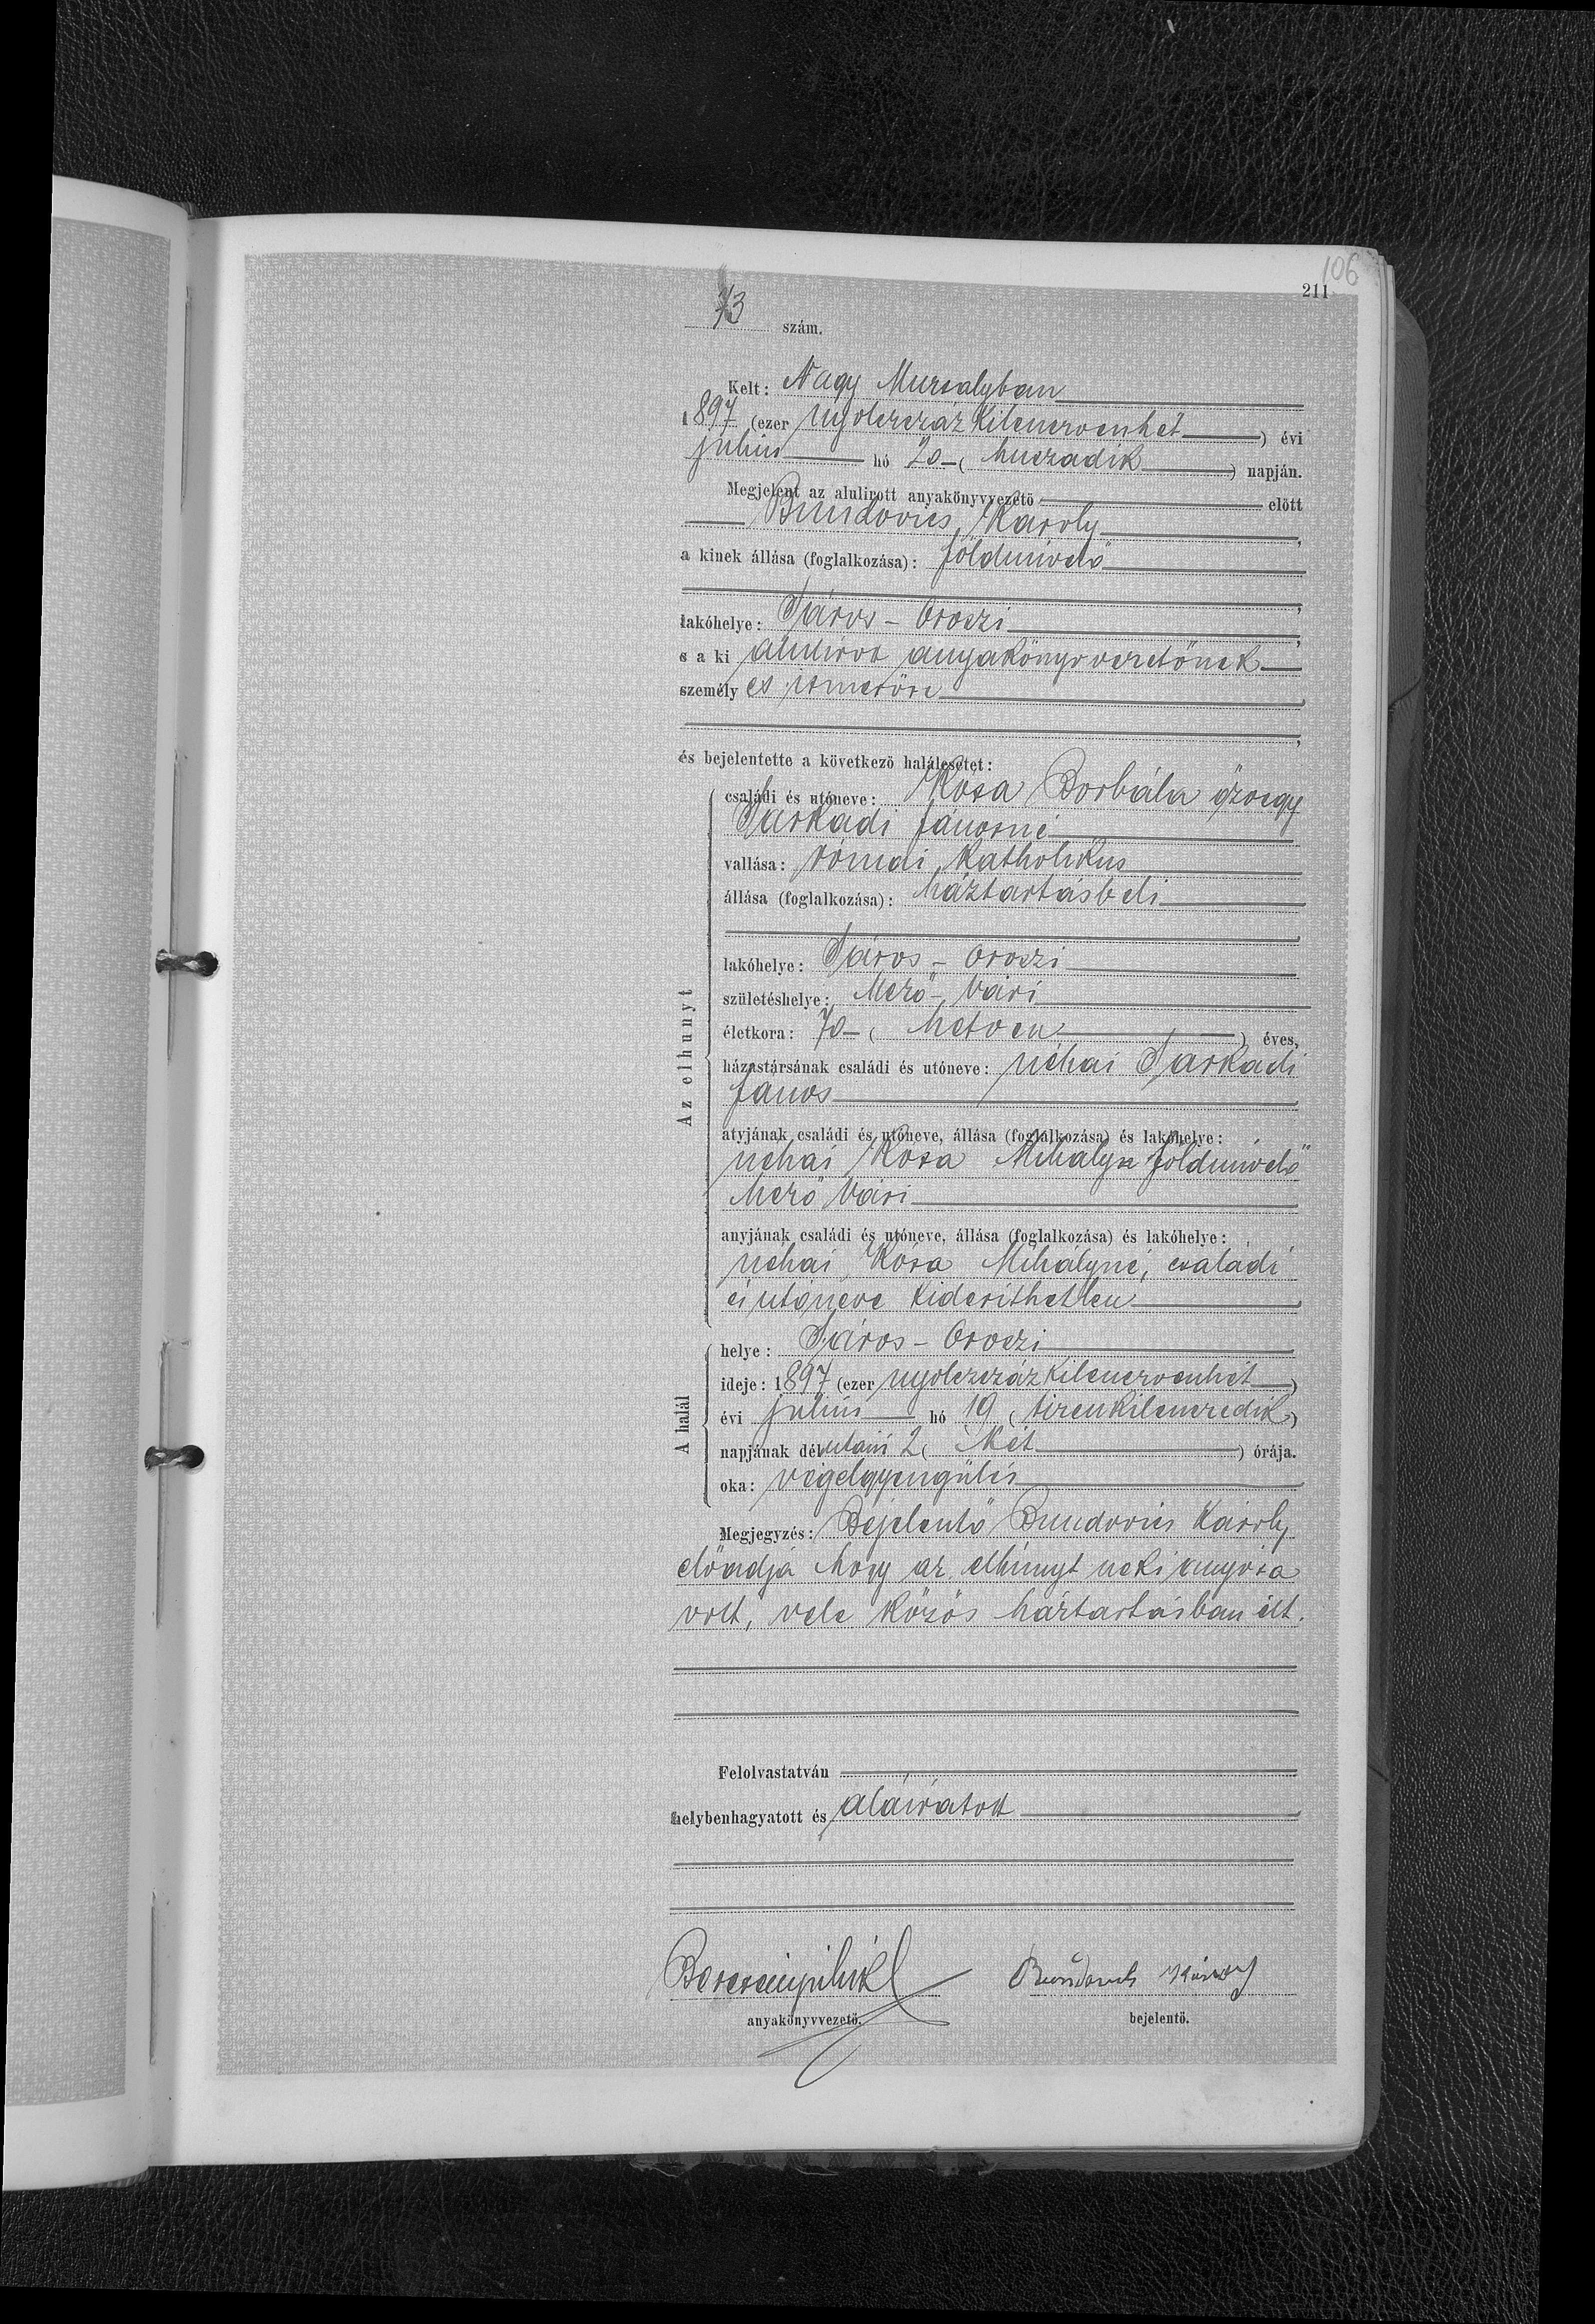 106
211
73 szám.
Kelt: Nagy Muzsalyban
1897 (ezer nyolczszázkilenczvenhét) évi
julius hó 20 (huszadik) napján.
Megjelent az alulirott anyakönyvvezető előtt
Bundovics Károly,
a kinek állása (foglalkozása): földmivelő
,
lakóhelye: Sáros-Oroszi,
s a ki alulirott anyakönyvvezetőnek
személyes ismerőse
,
és bejelentette a következő halálesetet:
Az elhunyt
családi és utóneve: Kósa Borbála özvegy
Sarkadi Jánosné
vallása: római katholikus
állása (foglalkozása): háztartásbeli
lakóhelye: Sáros-Oroszi
születéshelye: Mező-Vári
életkora: 70 (hetven) éves,
házastársának családi és utóneve: néhai Sarkadi
János
atyjának családi és utóneve, állása (foglalkozása) és lakóhelye:
néhai Kósa Mihály földmivelő
Mező Vári
anyjának családi és utóneve, állása (foglalkozása) és lakóhelye:
néhai Kósa Mihályné, családi
és utóneve kideríthetlen
A halál
helye: Sáros-Oroszi
ideje: 1897 (ezer nyolczszázkilenczvenhét)
évi julius hó 19 (tizenkilenczedik)
napjának délutáni 2 (két) órája.
oka: végelgyengülés
Megjegyzés: Bejelentő Bundovics Károly
előadja hogy az elhunyt neki anyósa
volt, vele közös háztartásban élt.
Felolvastatván
helybenhagyatott és aláiratott
Bundovics Károly
anyakönyvvezető. bejelentő.